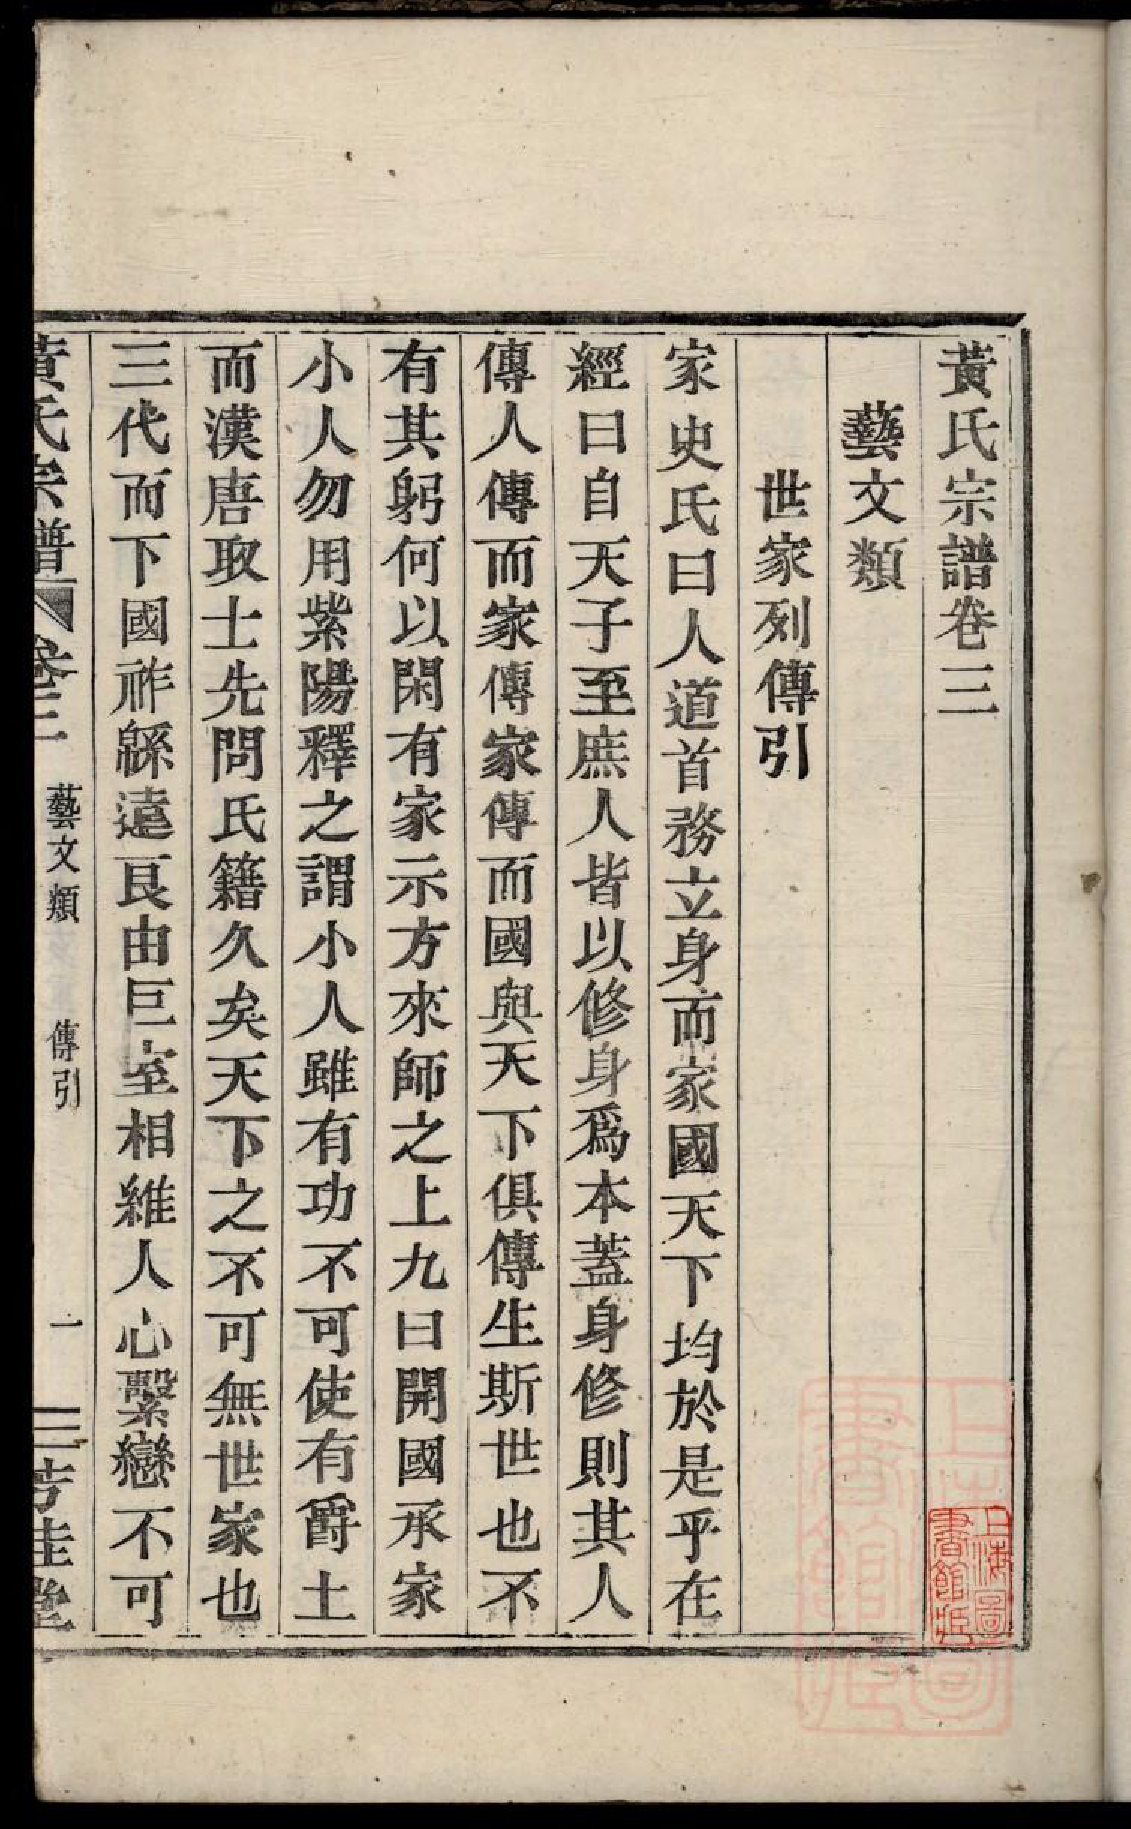 黃氏宗譜卷三
藝文類
世家列傳引
家史氏曰人道首務立身而家國天下均於是乎在
經曰自天子至庶人皆以修身爲本蓋身修則其人
傳人傳而家傳家傳而國與天下俱傳生斯世也不
有其躬何以閑有家示方來師之上九曰開國承家
小人勿用紫陽釋之謂小人雖有功不可使有爵土
而漢唐取士先問氏籍久矣天下之不可無世家也
三代而下國祚緜遠艮由巨室相維人心繫戀不可
黃氏宗譜 卷三 藝文類 傳引 一 芳桂堂
上海圖書館藏
上海圖書館藏